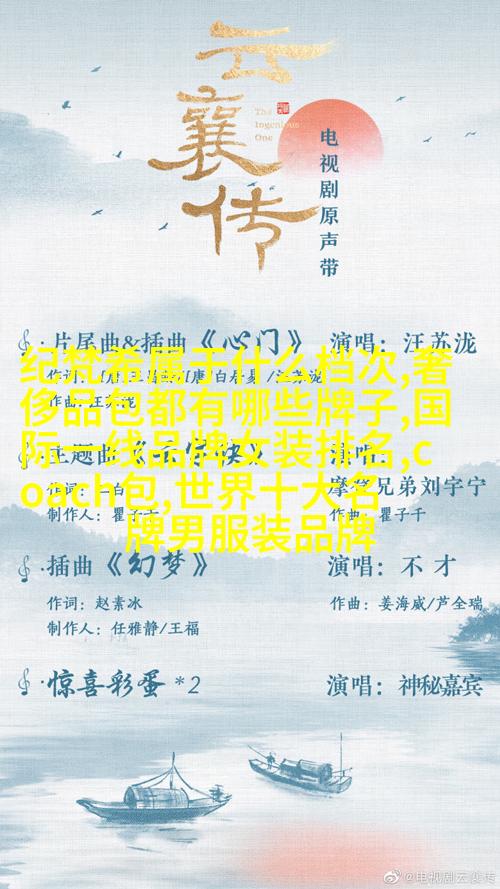 云襄传
The Ingenious One
电视剧原声带
片尾曲&插曲《心门》 演唱：汪苏泷
纪梵希属于什么档次,奢
侈品包都有哪些牌子,国
际一线品牌女装排名,co
coach包,世界十大名
牌男服装品牌
作曲：汪苏泷
主题曲
演唱：
摩登兄弟刘宇宁
制作人：瞿子千
作曲：瞿子千
插曲《幻梦》 演唱：不才
作词：赵素冰 作曲：姜海威/芦全瑞
制作人：任雅静/王福
惊喜彩蛋*2 演唱：神秘嘉宾
@电视剧云襄传